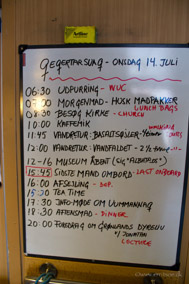 QEQERTARSUAQ - ONSDAG 14. JULI
06:30 UDPURRING - WUC
07:00 MORGENMAD - HUSK MADPAKKER
LUNCH BAGS
08:30 BESØG KIRKE - CHURCH
10:00 KAFFEMIK
11:45 VANDRETUR: BASALTSØJLER
12:00 VANDRETUR: VANDFALDET - 2½
12-16 MUSEUM ÅBENT
15:45 SIDSTE MAND OMBORD - LAST ONBOARD
16:00 AFSEJLING - DEP.
15:30 TEA TIME
17:30 INFO-MØDE OM UUMMANNAQ
18:30 AFTENSMAD - DINNER
20:00 FOREDRAG OM GRØNLANDS DYRELIV
v/ JONATAN
LECTURE